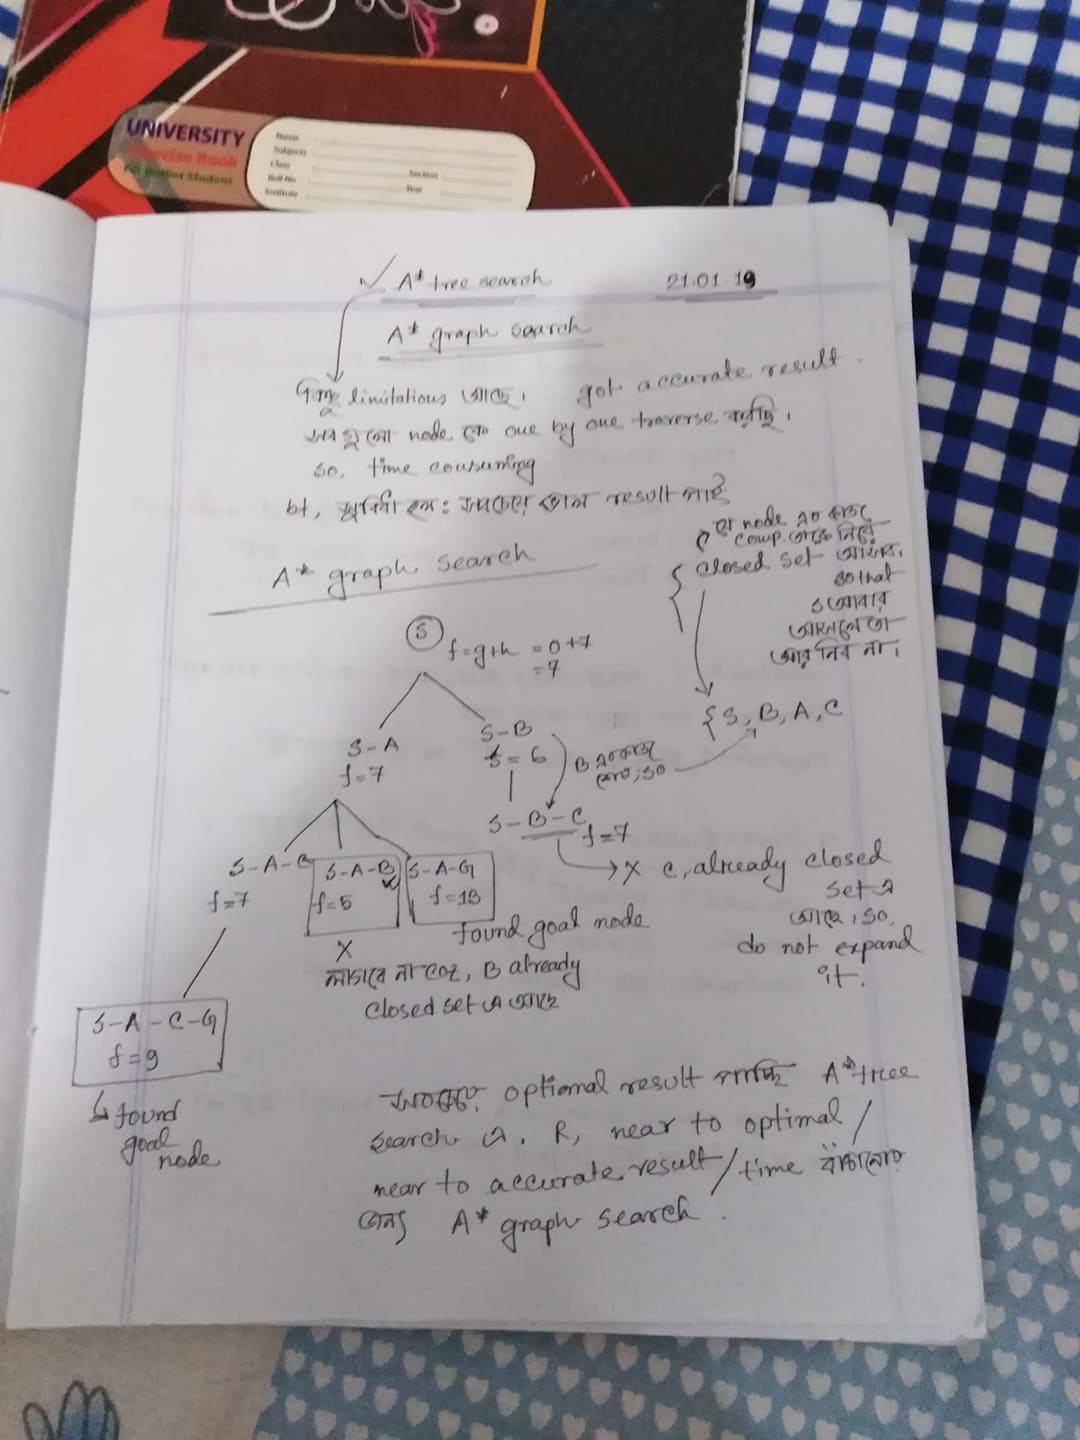 UNIVERSITY
Exercise Book
For Brilliant Student
Name
Subject
Class
Roll No
Section
Institute
Year
✓ A* tree search
21.01.19
A* graph search
কিছু limitations আছে। got accurate result.
সব গুলো node কে one by one traverse করছি।
so, time consuming
bt, সুবিধা হল: সবচেয়ে ভাল result পাই
A* graph search
যে node এর কাজ
comp. তাকে নিয়ে
closed set আসব।
so that
S আবার
আসলে তা
আর নিব না।
{S, B, A, C
S
f=g+h = 0+7
=7
S-A
f=7
S-B
f= 6
B এর কাজ
শেষ, so
S-B-C
f=7
→ X C, already closed
set এ
আছে, so,
do not expand
it.
S-A-C
f=7
S-A-B
f=5
X
লাগবে না coz, B already
closed set এ আছে
S-A-G
f=13
found goal node
S-A-C-G
f=9
↳ found
goal
node
optional result পাচ্ছি A* tree
search এ. R, near to optimal/
near to accurate result/time বাঁচানোর
জন্য A* graph search.